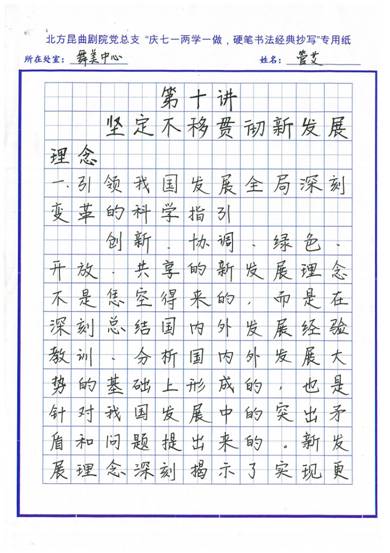 北方昆曲剧院党总支 “庆七一两学一做，硬笔书法经典抄写”专用纸
所在处室：舞美中心 姓名：管艾
第十讲
坚定不移贯彻新发展
理念
一.引领我国发展全局深刻
变革的科学指引
创新、协调、绿色、
开放、共享的新发展理念
不是凭空得来的，而是在
深刻总结国内外发展经验
教训、分析国内外发展大
势的基础上形成的，也是
针对我国发展中的突出矛
盾和问题提出来的。新发
展理念深刻揭示了实现更